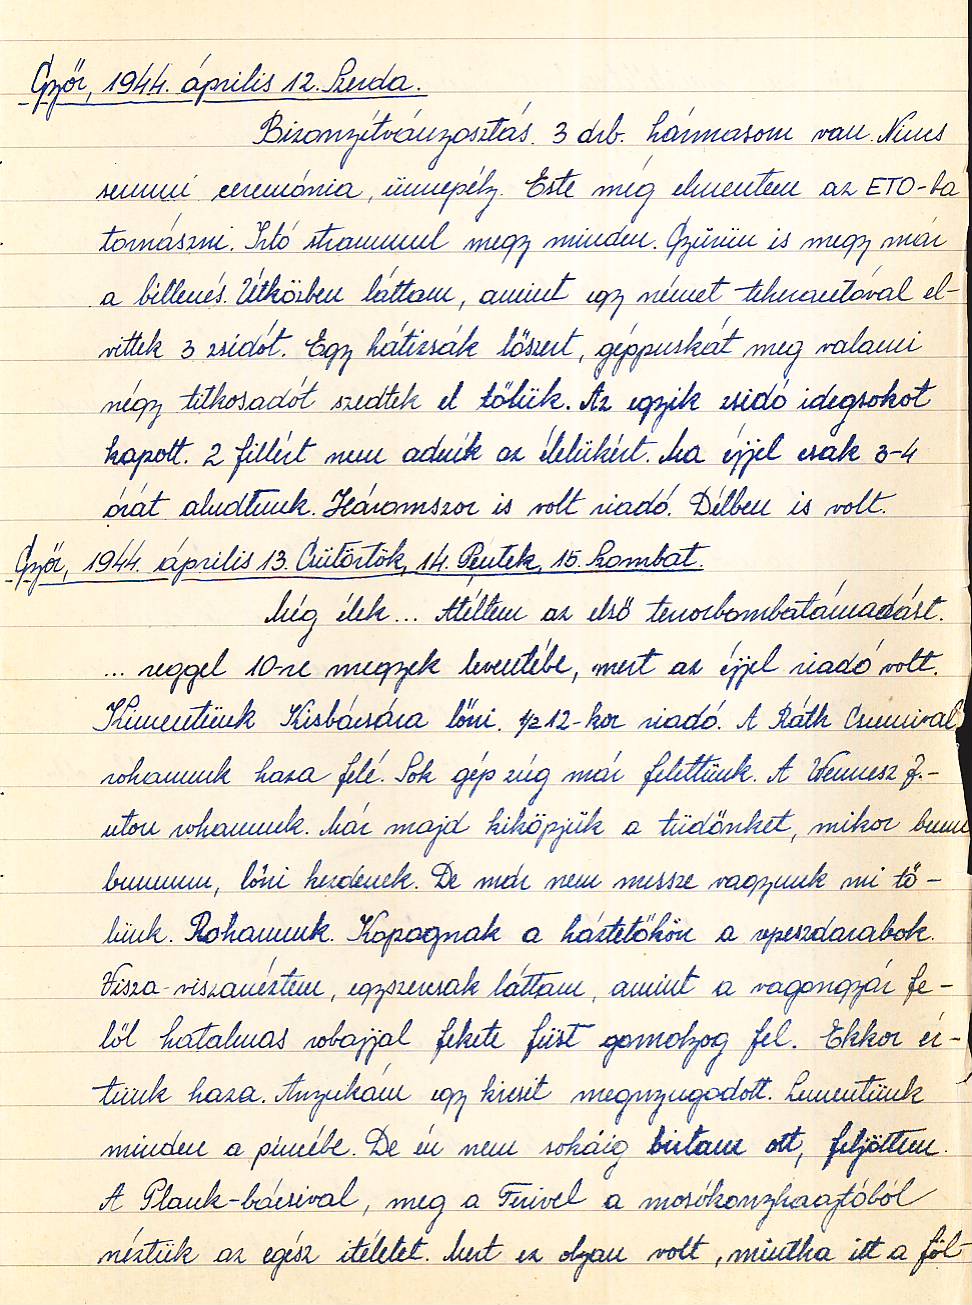 Győr, 1944. április 12. Szerda.
Bizonyítványosztás. 3 drb. hármasom van. Nincs
semmi ceremónia, ünnepély. Este még elmentem az ETO-ba
tornászni. Irtó strammul megy minden. Gyűrün is megy már
a billenés. Útközben láttam, amint egy német teherautóval el-
vittek 3 zsidót. Egy hátizsák lőszert, géppuskát meg valami
négy titkosadót szedtek el tőlük. Az egyik zsidó idegsokot
kapott. 2 fillért nem adnék az életükért. Ma éjjel csak 3-4
órát aludtunk. Háromszor is volt riadó. Délben is volt.
Győr, 1944. április 13. Csütörtök, 14. Péntek, 15. Szombat.
Még élek... Átéltem az első terrorbombatámadást.
... reggel 10-re megyek leventébe, mert az éjjel riadó volt.
Kimentünk Kisbácsára lőni. 1/2 12-kor riadó. A Ráth Csumival
rohanunk haza felé. Sok gép zúg már felettünk. A Wennesz J.-
uton rohanunk. Már majd kiköpjük a tüdőnket, mikor bumm
bummm, lőni kezdenek. De már nem messze vagyunk mi tő-
lünk. Rohanunk. Kopognak a háztetőkön a repeszdarabok.
Visza-viszanéztem, egyszercsak láttam, amint a vagongyár fe-
lől hatalmas robajjal fekete füst gomolyog fel. Ekkor ér-
tünk haza. Anyukám egy kicsit megnyugodott. Lementünk
minden a pincébe. De én nem sokáig birtam ott, feljöttem.
A Plank-bácsival, meg a Ferivel a mosókonyhaajtóból
néztük az egész itéletet. Mert ez olyan volt, mintha itt a föl-